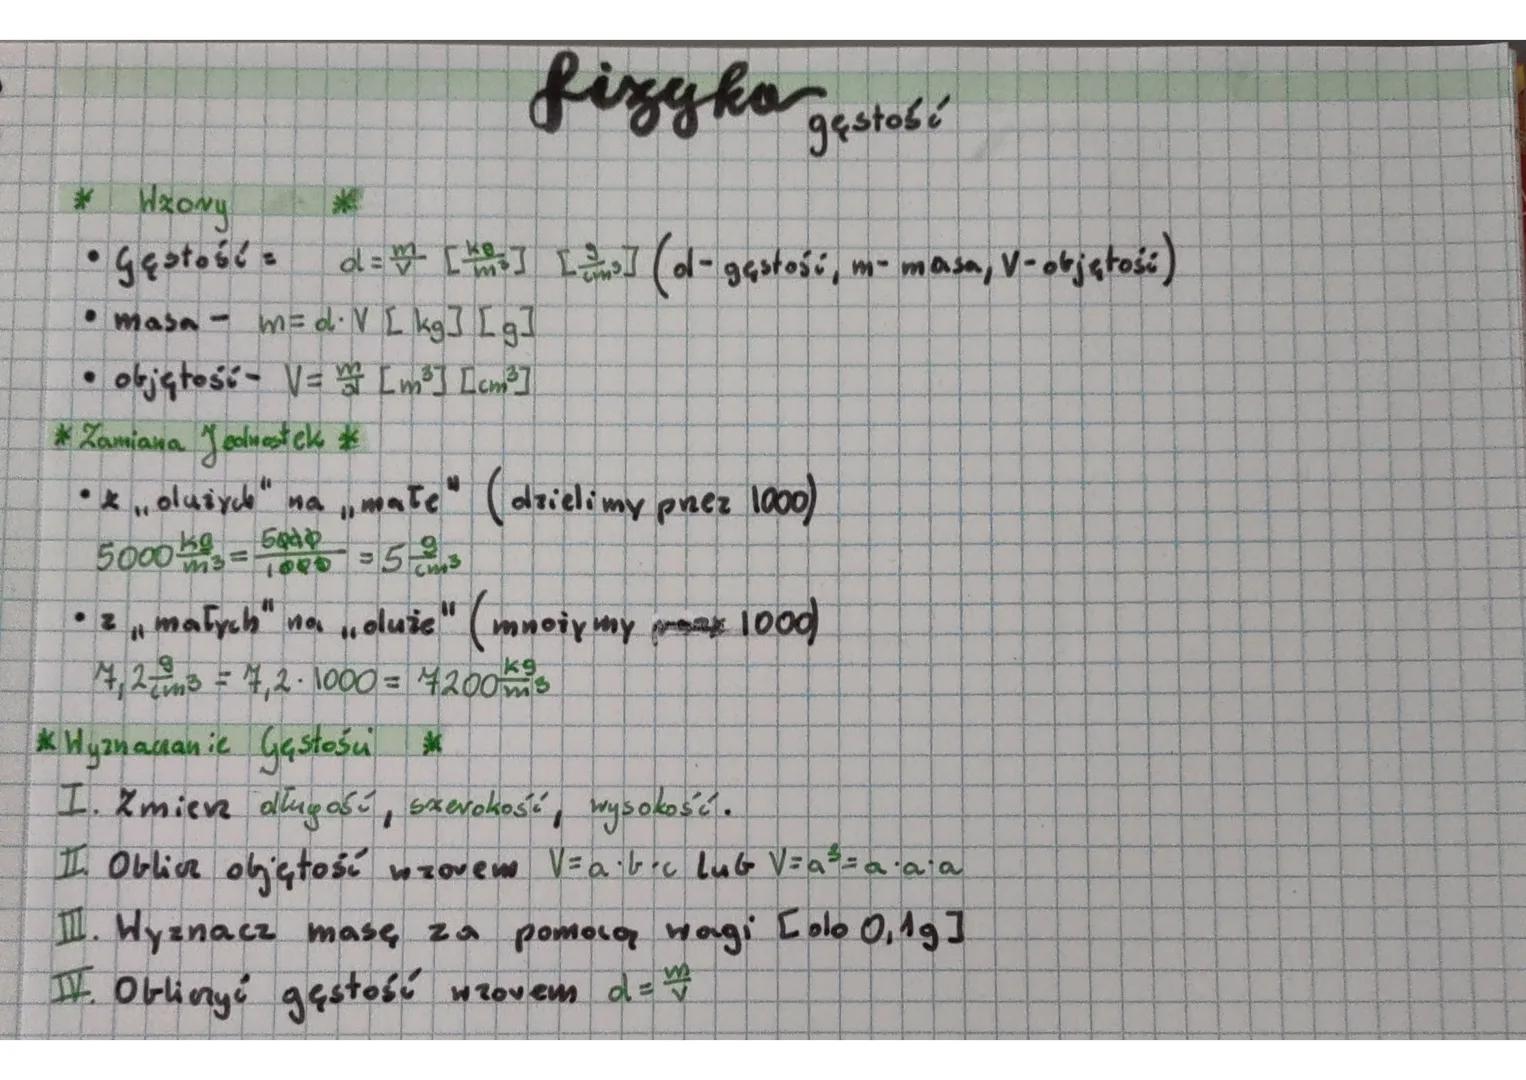 fizyka
gęstość
* Wzory *
• Gęstość = d = m/V [kg/m³] [g/cm³] (d - gęstość, m - masa, V - objętość)
• masa - m = d · V [kg] [g]
• objętość - V = m/d [m³] [cm³]
* Zamiana Jednostek *
• z „dużych" na „małe" (dzielimy przez 1000)
5000 kg/m³ = 5000/1000 = 5 g/cm³
• z „małych" na „duże" (mnożymy 1000)
7,2 g/cm³ = 7,2 · 1000 = 7200 kg/m³
* Wyznaczanie Gęstości *
I. Zmierz długość, szerokość, wysokość.
II. Oblicz objętość wzorem V = a · b · c lub V = a³ = a · a · a
III. Wyznacz masę za pomocą wagi [do 0,1g]
IV. Obliczyć gęstość wzorem d = m/V